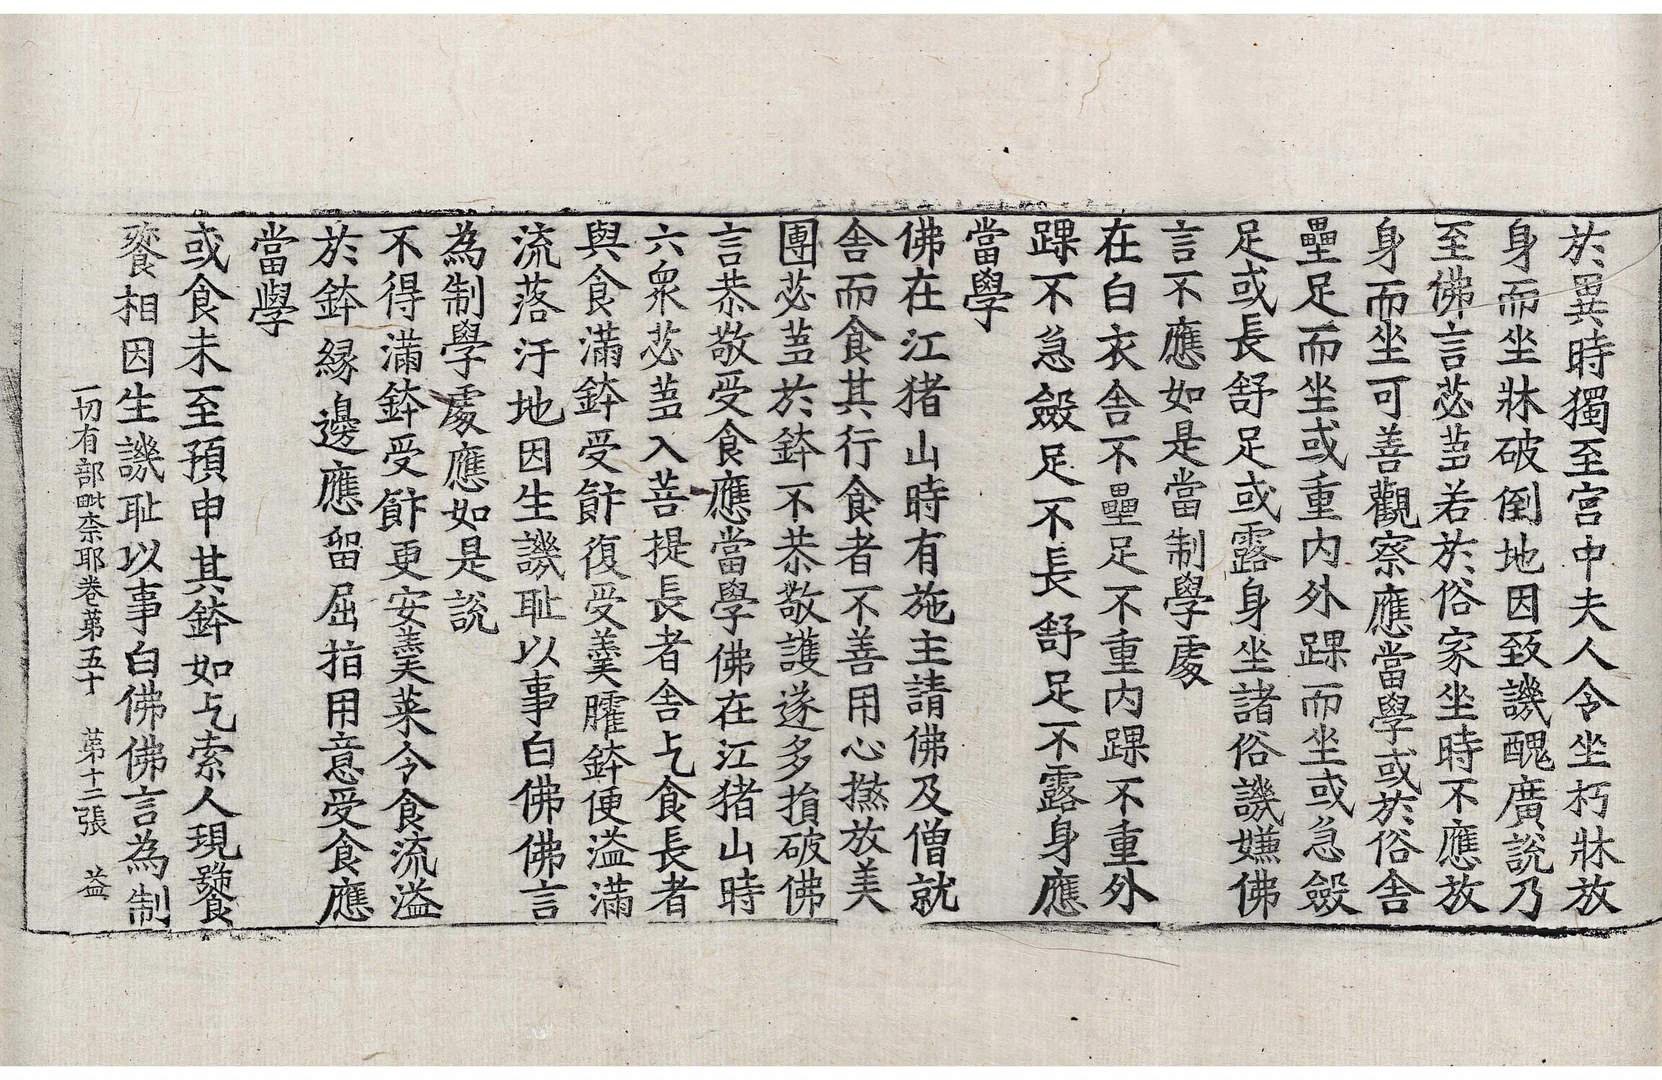 於異時獨至宮中夫人令坐朽牀放
身而坐牀破倒地因致譏醜廣說乃
至佛言苾芻若於俗家坐時不應放
身而坐可善觀察應當學或於俗舍
壘足而坐或重內外踝而坐或急斂
足或長舒足或露身坐諸俗譏嫌佛
言不應如是當制學處
在白衣舍不壘足不重內踝不重外
踝不急斂足不長舒足不露身應
當學
佛在江猪山時有施主請佛及僧就
舍而食其行食者不善用心撚放美
團苾芻於鉢不恭敬護遂多損破佛
言恭敬受食應當學佛在江猪山時
六眾苾芻入菩提長者舍乞食長者
與食滿鉢受飰復受羹臛鉢便溢滿
流落汙地因生譏恥以事白佛佛言
為制學處應如是說
不得滿鉢受飰更安羹菜令食流溢
於鉢緣邊應留屈指用意受食應
當學
或食未至預申其鉢如乞索人現饕
餮相因生譏恥以事白佛佛言為制
一切有部毗柰耶卷第五十　第十二張　益